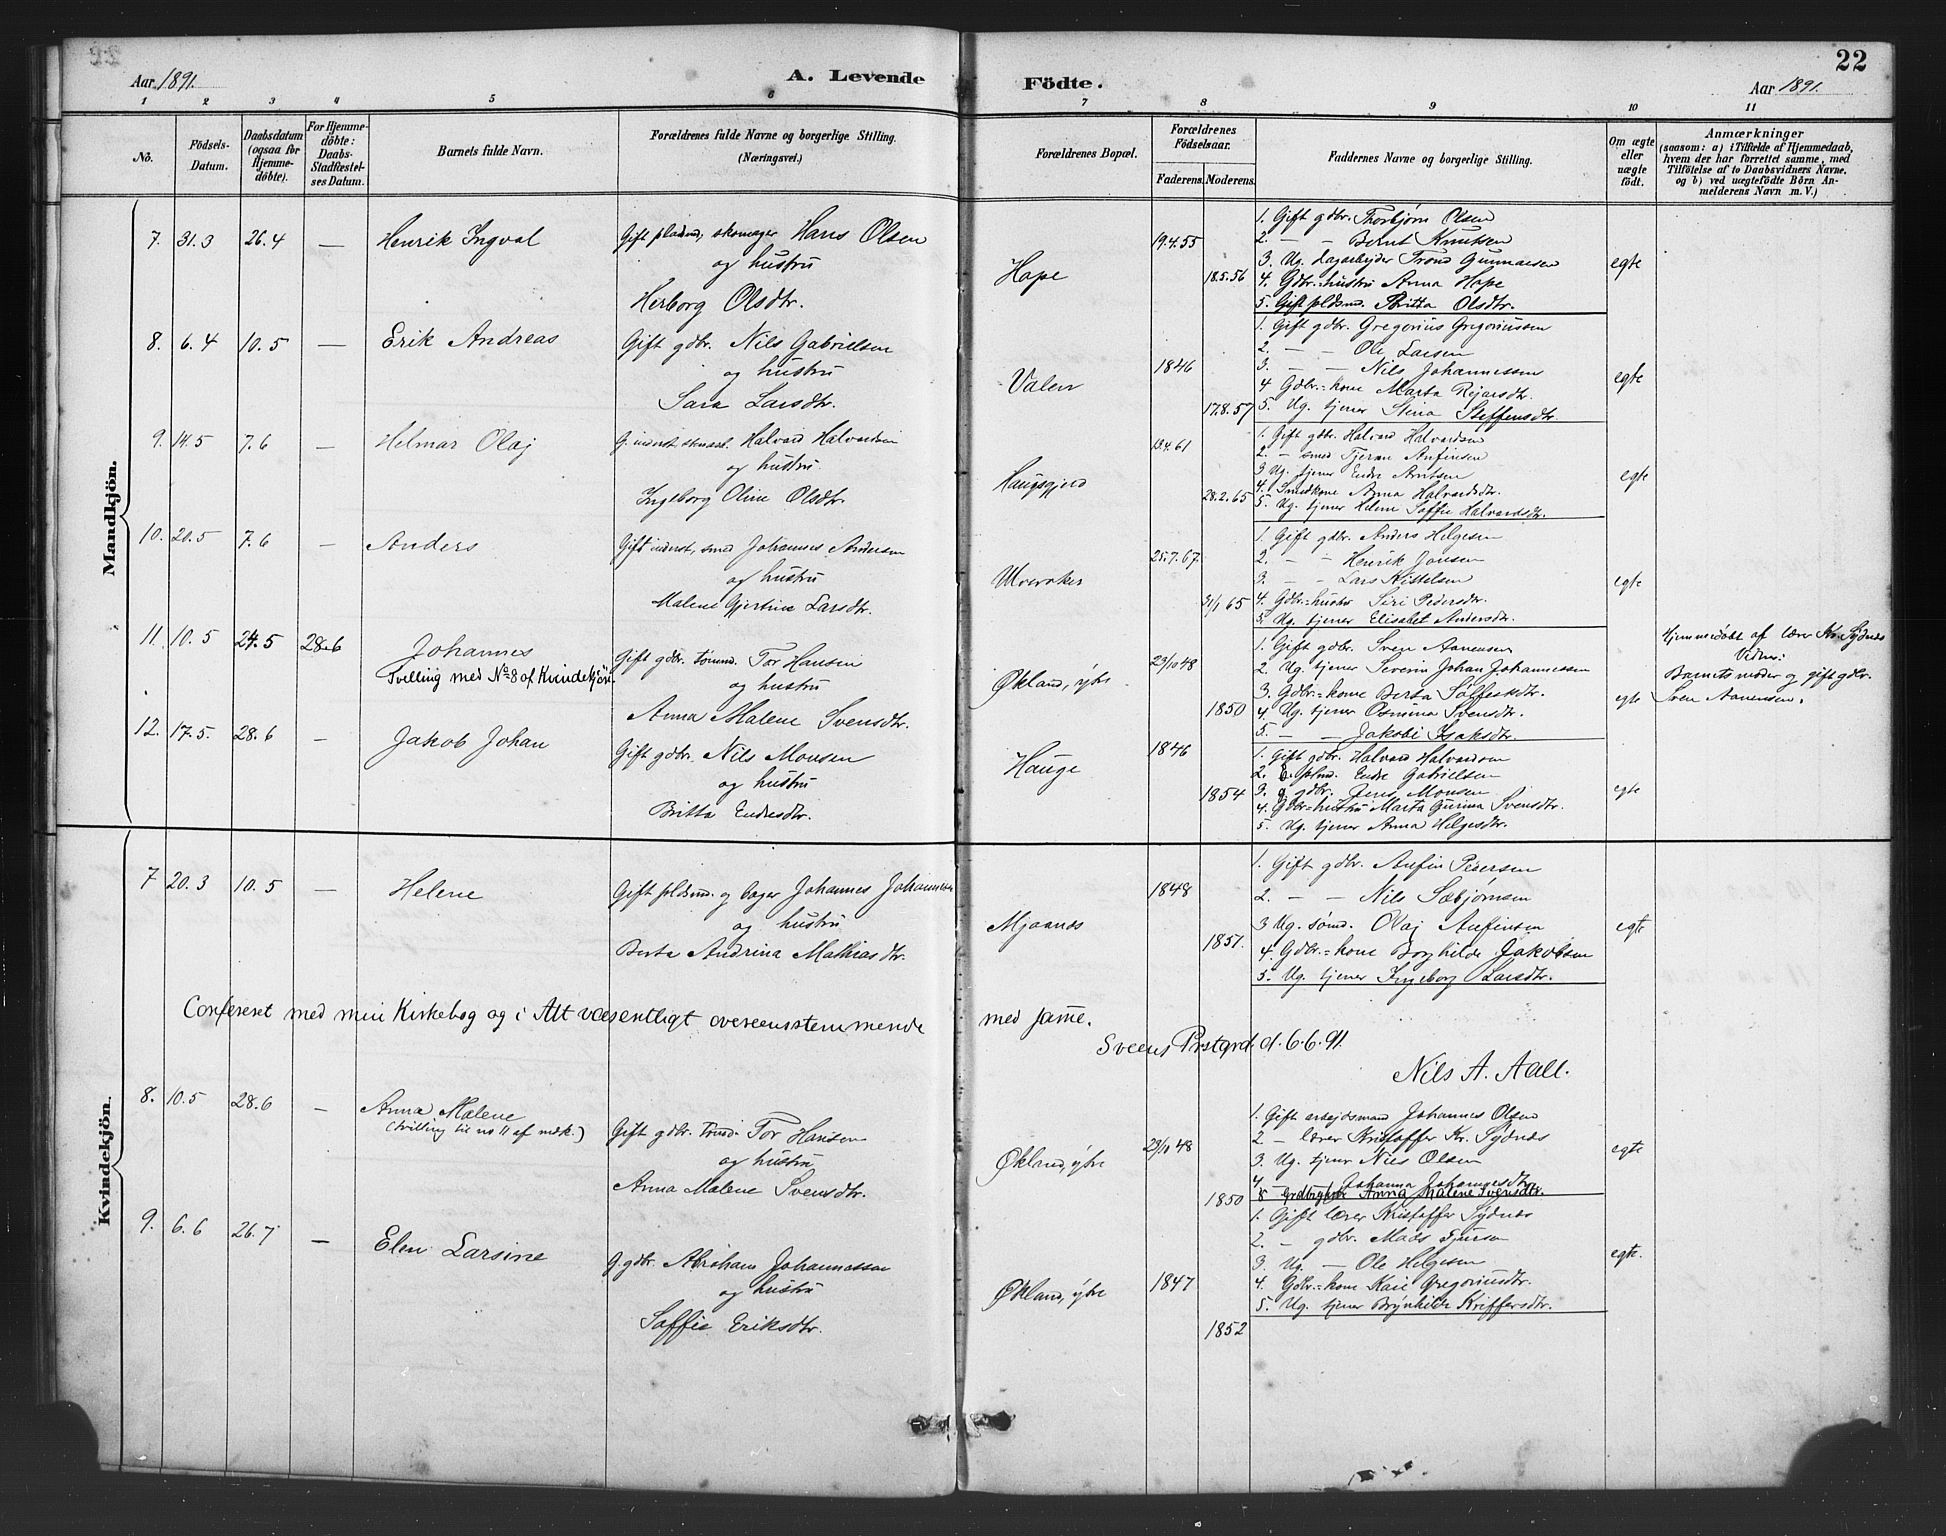 22
Aar 1891.
A. Levende Födte.
Aar 1891.
1 2 3 4 5 6 7 8 9 10 11
No.
Födsels-Datum.
Daabsdatum (ogsaa for Hjemme-döbte).
For Hjemme-döbte: Daabs-Stadfæstel-ses Datum.
Barnets fulde Navn.
Forældrenes fulde Navne og borgerlige Stilling. (Næringsvei.)
Forældrenes Bopæl.
Forældrenes Födselsaar.
Faderens. Moderens.
Faddernes Navne og borgerlige Stilling.
Om ægte eller uægte födt.
Anmærkninger
(saasom: a) i Tilfælde af Hjemmedaab,
hvem der har forrettet samme, med
Tilföielse af to Daabsvidners Navne,
og b) ved uægtefödte Börn An-
melderens Navn m. V.)
Mandkjön.
7. 31.3 26.4 — Henrik Ingval
Gift pladsm, skomager Hans Olsen
og hustru
Herborg Olsdtr.
Hope
19.4.55
18.5.56
1. Gift gdbr. Thorbjørn Olsen
2. — — Bernt Knutsen
3. Ug. dagarbejder Trond Gunnarsen
4. Gdbr.-hustru Anna Hope
5. Gift pldsm. Britta Olsdtr.
egte
8. 6.4 10.5 — Erik Andreas
Gift gdbr. Nils Gabrielsen
og hustru
Sara Larsdtr.
Valen
1846
17.8.57
1. Gift gdbr. Gregorius Gregoriussen
2. — — Ole Larsen
3. — — Nils Johannessen
4 Gdbr.-kone Marta Rejarsdtr.
5. Ug. tjener Stina Steffensdtr.
egte
9. 14.5 7.6 — Helmar Olaj
G. inderst Halvard Halvardsen
og hustru.
Ingeborg Oline Olsdtr.
Haugsgjerd
13.4.61
28.2.65
1. Gift gdbr. Halvard Halvardsen
2. — smed Tjeran Anfinsen
3 Ug. tjener Endre Arntsen
4. Smedkone Anna Halvardsdtr.
5. Ug. tjener Helene Soffie Halvardsdtr.
egte
10. 20.5 7.6 — Anders
Gift inderst, smed Johannes Andersen
og hustru
Malene Gjertine Larsdtr.
Utvaaker
25.7.67.
31/1 65
1. Gift gdbr. Anders Helgesen
2. — — Henrik Jansen
3. — — Lars Kittelsen
4. Gdbr.-hustru Siri Pedersdtr.
5. Ug. tjener Elisabet Andersdtr.
egte
11. 10.5 24.5 28.6 Johannes
Tvilling med No 8 af Kvindekjön.
Gift gdbr. tømmd. Tor Hansen
og hustru
Anna Malene Svensdtr.
Økland, ytre
23/10 48
1850
1. Gift gdbr. Sven Aanensen
2. Ug. tjener Severin Johan Johannessen
3. Gdbr.-kone Berta Soffiesdtr.
4. Ug. tjener Osmina Svensdtr.
5. — — Jakobi Isaksdtr.
egte
Hjemmedöbt af lærer Kr. Sydnes
Vidner:
Barnets moder og gift gdbr.
Sven Aanensen.
12. 17.5. 28.6 — Jakob Johan
Gift gdbr. Nils Monsen
og hustru
Britta Endresdtr.
Hauge
1846
1854
1. Gift gdbr. Halvard Halvardsen
2. G. pldm. Endre Gabrielsen
3. G gdbr. Jens Monsen
4. Gdbr-hustru Marta Gurina Svensdtr.
5. Ug. tjener Anna Helgesdtr.
egte
Kvindekjön.
7 20.3 10.5 — Helene
Gift pldsm. og bager Johannes Johannessen
og hustru
Berta Andrina Mathiasdtr.
Mjaanes
1848
1851.
1. Gift gdbr. Anfin Pedersen
2. — — Nils Sæbjørnsen
3 Ug. sømd. Olaj Anfinsen
4. Gdbr.-kone Borghilde Jakobsen
5. Ug. tjener Ingeborg Larsdtr.
egte
Confereret med min Kirkebog og i Alt væsentligt overeensstemmende med samme.
Sveens Prstgrd. d. 6.6.91.
Nils A. Aall.
8. 10.5 28.6 — Anna Malene
(tvilling til no 11 af mdk.)
Gift gdbr. tømd. Tor Hansen
og hustru
Anna Malene Svensdtr.
Økland, ytre
23/10 48
1850
1. Gift arbejdsmand Johannes Olsen
2 — lærer Kristoffer Kr. Sydnes
3. Ug. tjener Nils Olsen
4. — — Johanna Johannesdtr.
5 — Grdbrgkone Anna Malene Svensdtr.
egte
9. 6.6 26.7 — Elen Larsine
G. gdbr. Abraham Johannessen
og hustru
Soffie Eriksdtr.
Økland, ytre
1847
1852
1. Gift lærer Kristoffer Sydnes
2. — gdbr. Mads Tjersen
3. Ug — Ole Helgesen
4. Gdbr.-kone Kari Gregoriusdtr.
5. Ug. tjener Brynhilde Kriffersdtr.
egte.